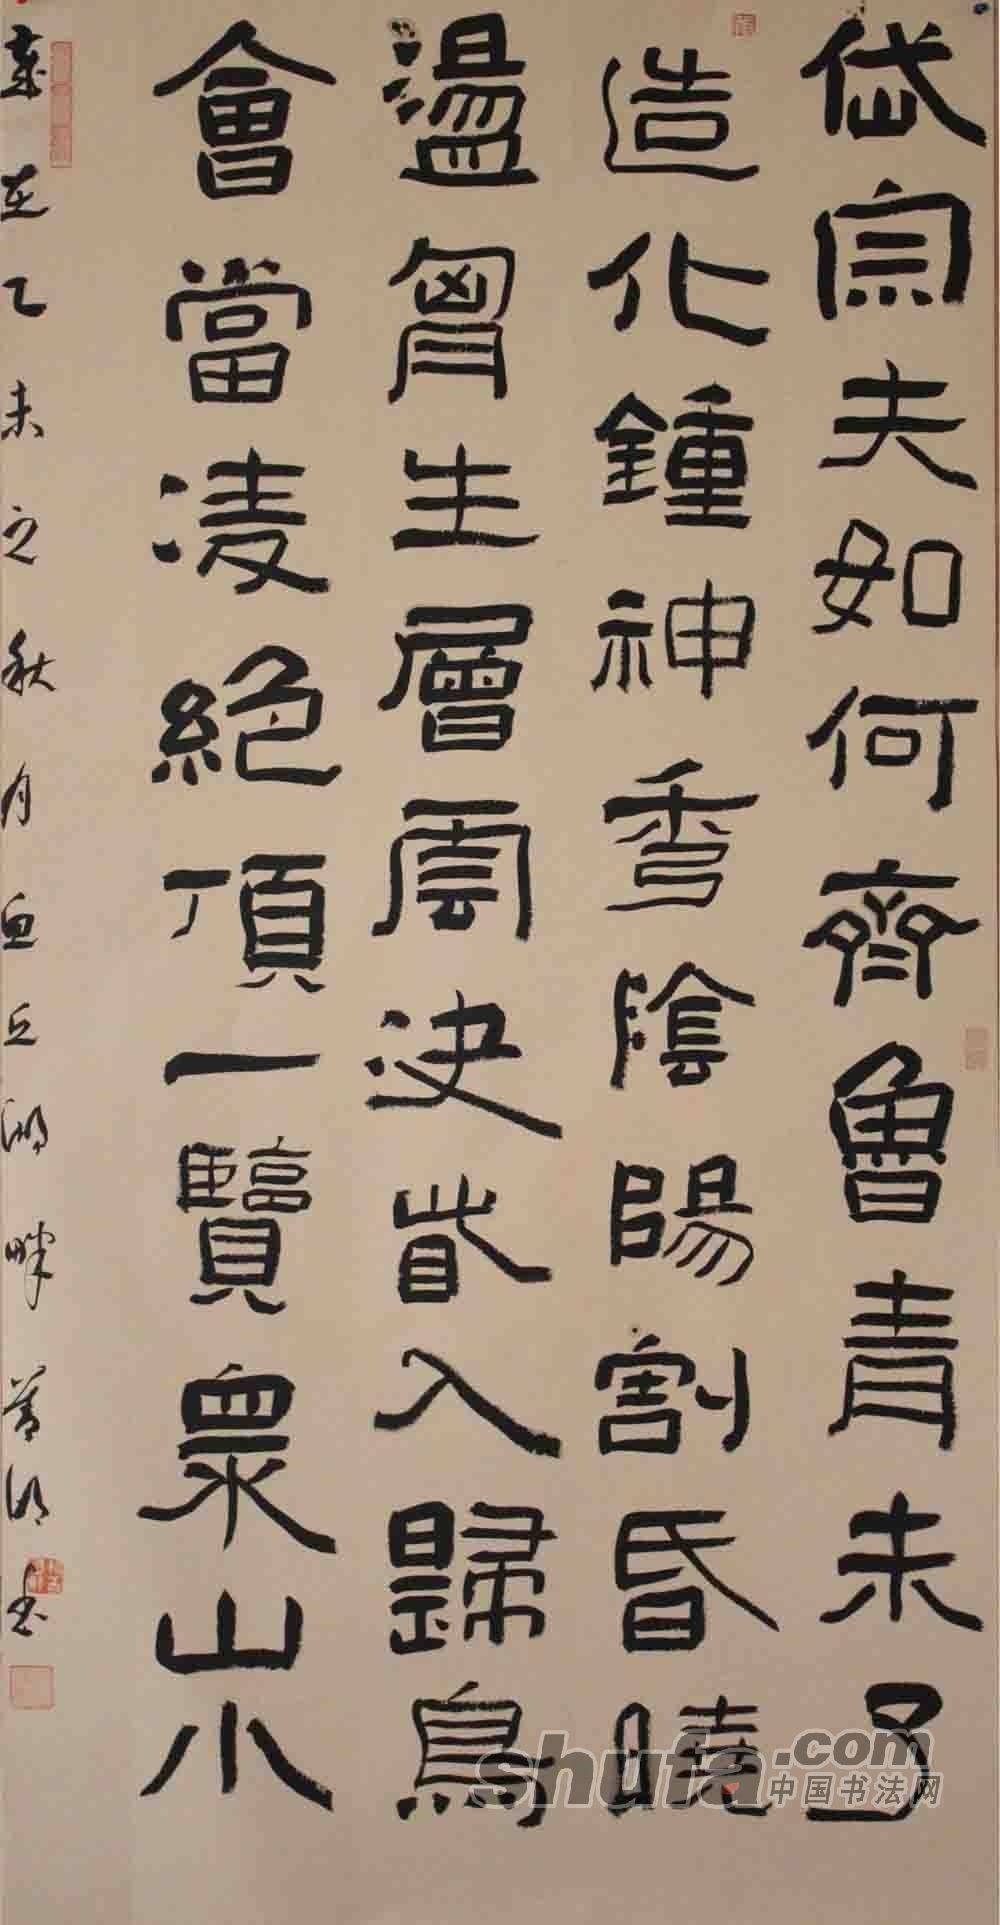 岱宗夫如何齊魯青未了
造化鍾神秀陰陽割昏曉
盪胷生層雲決眥入歸鳥
會當凌絕頂一覽眾山小
歲在乙未之秋月魚丘湖畔書
shufa.com
中国书法网